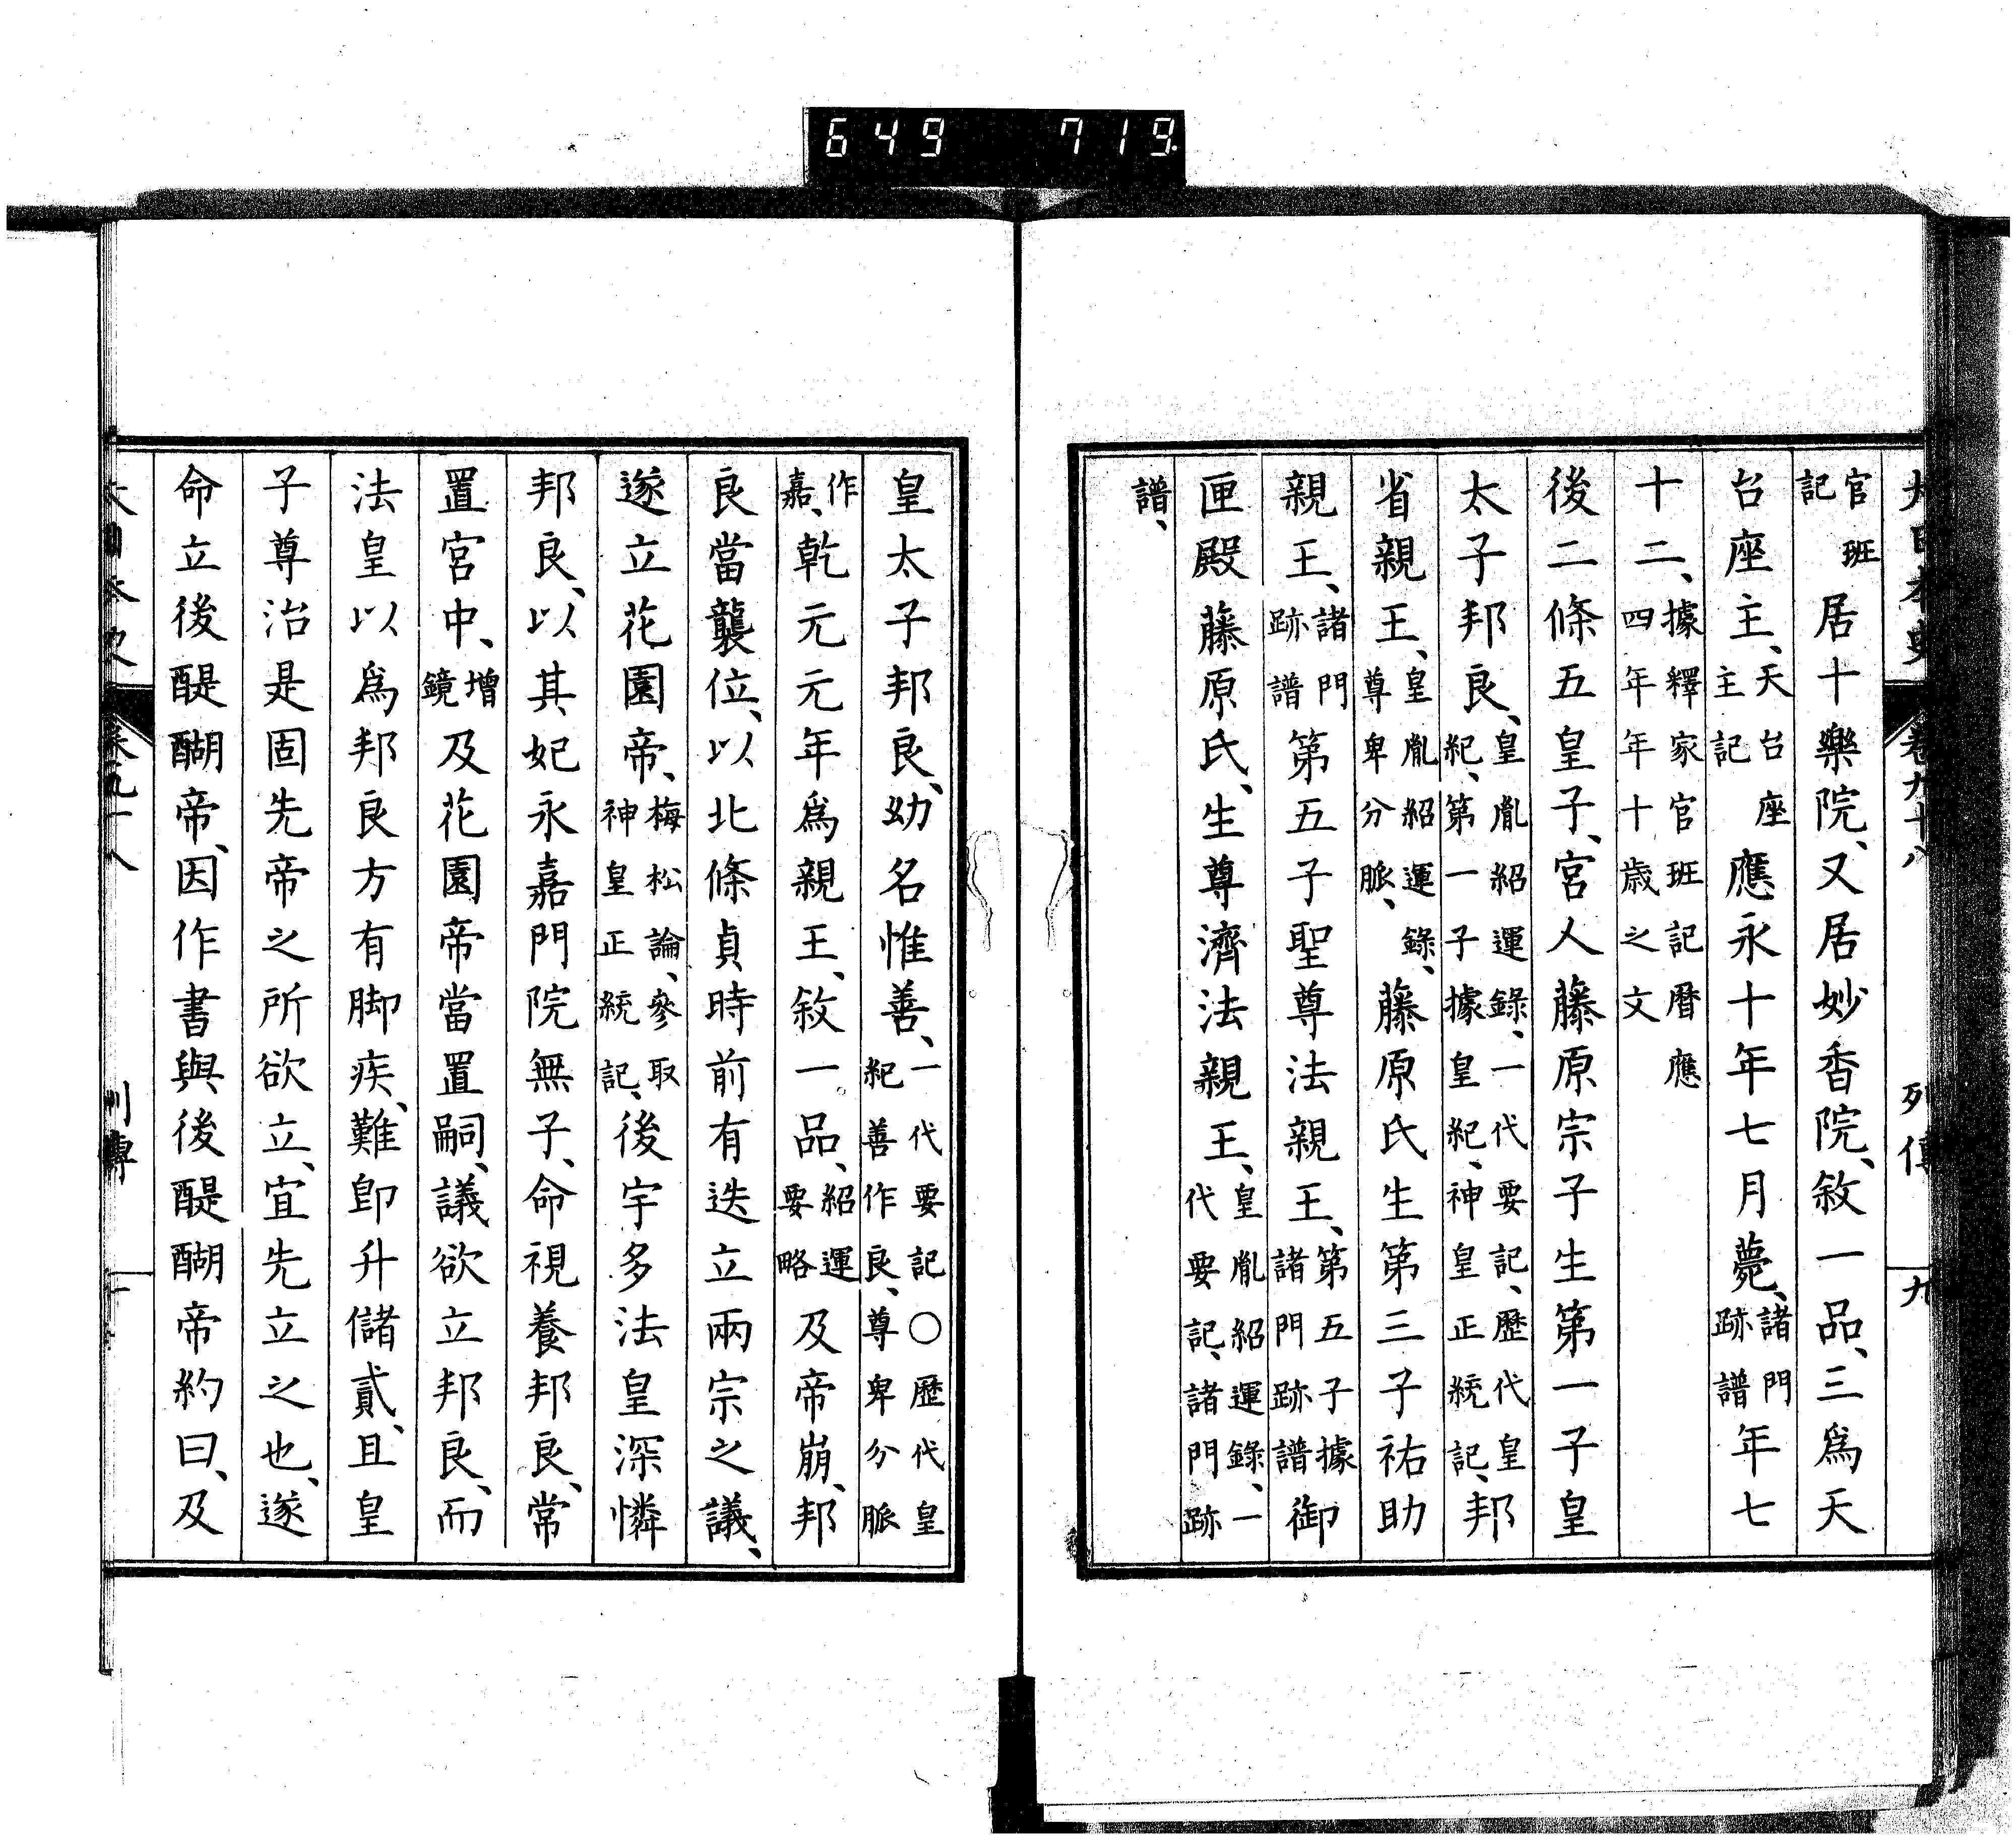 649 719.
大日本史 卷九十八 列傳 九
官班記居十樂院、又居妙香院、敘一品、三爲天
台座主、天台座主記應永十年七月薨、諸門跡譜年七
十二、據釋家官班記曆應四年年十歲之文
後二條五皇子、宮人藤原宗子生第一子皇
太子邦良、皇胤紹運錄、一代要記、歷代皇紀、第一子據皇紀、神皇正統記、邦
省親王、皇胤紹運錄、尊卑分脈、藤原氏生第三子祐助
親王、諸門跡譜第五子聖尊法親王、第五子據諸門跡譜御
匣殿藤原氏、生尊濟法親王、皇胤紹運錄、一代要記、諸門跡
譜、
皇太子邦良、幼名惟善、一代要記○歷代皇紀善作良、尊卑分脈
作嘉、乾元元年爲親王、敘一品、紹運要略及帝崩、邦
良當襲位、以北條貞時前有迭立兩宗之議、
遂立花園帝、梅松論、參取神皇正統記、後宇多法皇深憐
邦良、以其妃永嘉門院無子、命視養邦良、常
置宮中、增鏡及花園帝當置嗣、議欲立邦良、而
法皇以爲邦良方有脚疾、難卽升儲貳、且皇
子尊治是固先帝之所欲立、宜先立之也、遂
命立後醍醐帝、因作書與後醍醐帝約曰、及
大日本史 卷九十八 列傳